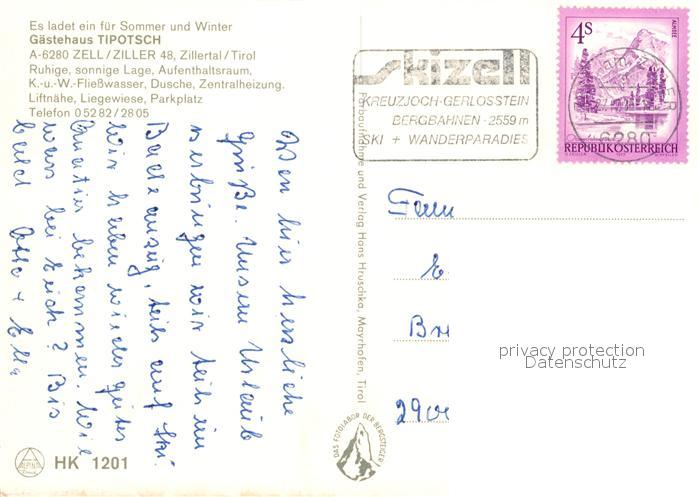 Es ladet ein für Sommer und Winter
Gästehaus TIPOTSCH
A-6280 ZELL/ZILLER 48, Zillertal/Tirol
Ruhige, sonnige Lage, Aufenthaltsraum,
K.-u.-W.-Fließwasser, Dusche, Zentralheizung.
Liftnähe, Liegewiese, Parkplatz
Telefon 05282/2805
skizell
KREUZJOCH-GERLOSSTEIN
BERGBAHNEN - 2559 m
SKI + WANDERPARADIES
4S
ALMSEE
6280
REPUBLIK ÖSTERREICH
Von hier herzliche
Grüße. Unsern Urlaub
verbringen wir teils im
Badeanzug, teils auf Ski.
Wir haben wieder gutes
Quartier bekommen. Wie
was bei Euch? Bis
bald Otto + Elli
Farbaufnahme und Verlag Hans Hruschka, Mayrhofen, Tirol
Fam
E
Br
290
privacy protection
Datenschutz
DAS FOTOLABOR DER BERGSTEIGER
ALPINA
HK 1201